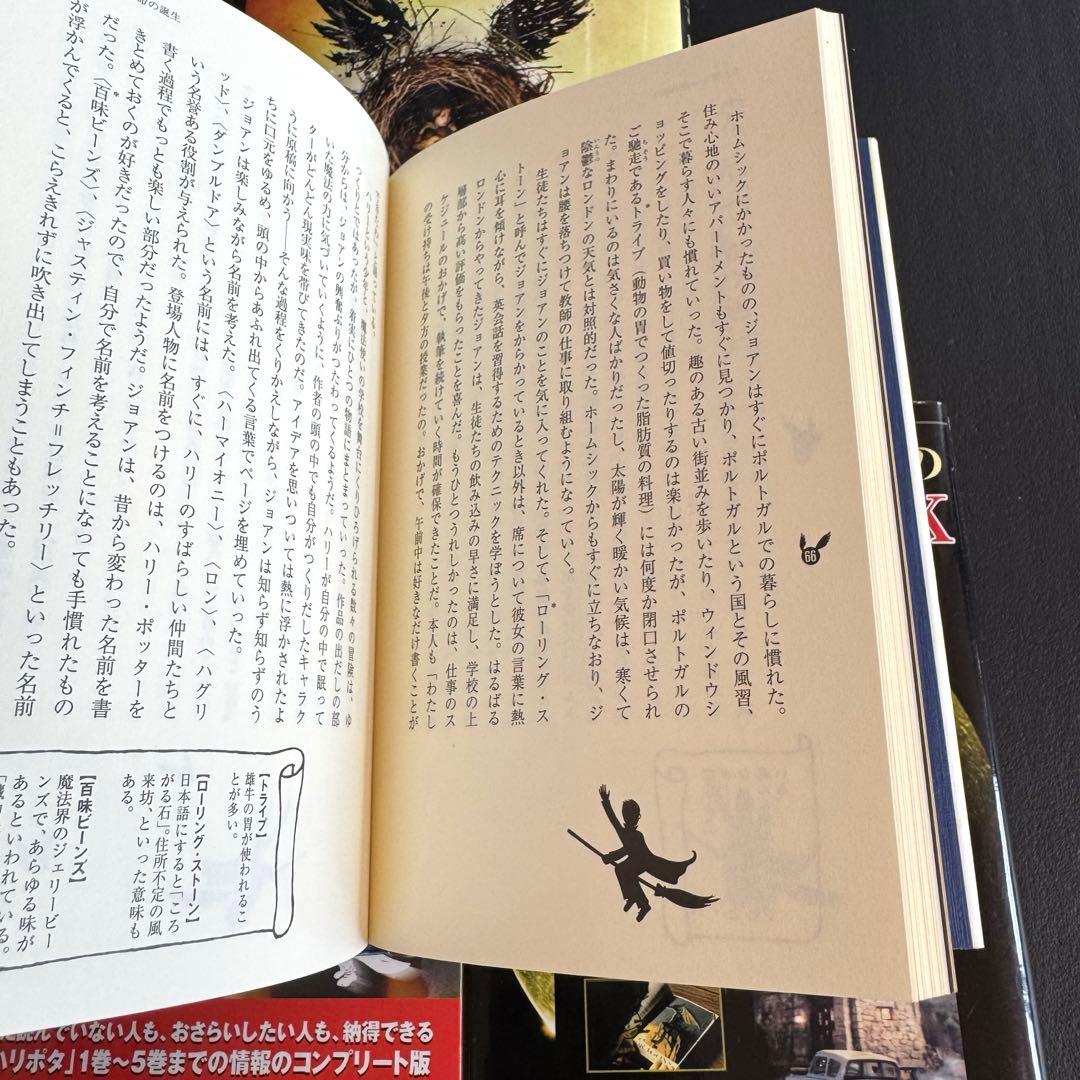 ホームシックにかかったものの、ジョアンはすぐにポルトガルでの暮らしに慣れた。
住み心地のいいアパートメントもすぐに見つかり、ポルトガルという国とその風習、
そこで暮らす人々にも慣れていった。趣のある古い街並みを歩いたり、ウィンドウシ
ョッピングをしたり、買い物をして値切ったりするのは楽しかったが、ポルトガルの
ご馳走であるトライプ（動物の胃でつくった脂肪質の料理）には何度か閉口させられ
た。まわりにいるのは気さくな人ばかりだったし、太陽が輝く暖かい気候は、寒くて
陰鬱なロンドンの天気とは対照的だった。ホームシックからもすぐに立ちなおり、ジ
ョアンは腰を落ちつけて教師の仕事に取り組むようになっていく。
生徒たちはすぐにジョアンのことを気に入ってくれた。そして、「ローリング・ス
トーン」と呼んでジョアンをからかっているとき以外は、席について彼女の言葉に熱
心に耳を傾けながら、英会話を習得するためのテクニックを学ぼうとした。はるばる
ロンドンからやってきたジョアンは、生徒たちの飲み込みの早さに満足し、学校の上
層部から高い評価をもらったことを喜んだ。もうひとつうれしかったのは、仕事のス
ケジュールのおかげで、執筆を続けていく時間が確保できたことだ。本人も「わたし
の受け持ちは午後と夕方の授業だったの。おかげで、午前中は好きなだけ書くことが
66
の誕生
魔法使いの学校を舞台にくりひろげられる数々の冒険は、ゆ
っくりとではあったが、着実にひとつの物語にまとまっていった。作品の出だしの部
分からは、ジョアンの興奮ぶりがつたわってくるようだ。ハリーが自分の中で眠って
いた魔法の力に気づいていくように、作者の頭の中でも自分がつくりだしたキャラク
ターがどんどん現実味を帯びてきたのだ。アイデアを思いついては熱に浮かされたよ
うに原稿に向かう――そんな過程をくりかえしながら、ジョアンは知らず知らずのう
ちに口元をゆるめ、頭の中からあふれ出てくる言葉でページを埋めていった。
ジョアンは楽しみながら名前を考えた。〈ハーマイオニー〉、〈ロン〉、〈ハグリ
ッド〉、〈ダンブルドア〉という名前には、すぐに、ハリーのすばらしい仲間たちと
いう名誉ある役割が与えられた。登場人物に名前をつけるのは、ハリー・ポッターを
書く過程でもっとも楽しい部分だったようだ。ジョアンは、昔から変わった名前を書
きとめておくのが好きだったので、自分で名前を考えることになっても手慣れたもの
だった。〈百味ビーンズ〉、〈ジャスティン・フィンチ＝フレッチリー〉といった名前
が浮かんでくると、こらえきれずに吹き出してしまうこともあった。
【トライプ】
雄牛の胃が使われるこ
とが多い。
【ローリング・ストーン】
日本語にすると「ころ
がる石」。住所不定の風
来坊、といった意味も
ある。
【百味ビーンズ】
魔法界のジェリービー
ンズで、あらゆる味が
あるといわれている。
読んでいない人も、おさらいしたい人も、納得できる
ハリポタ」1巻〜5巻までの情報のコンプリート版
の
K